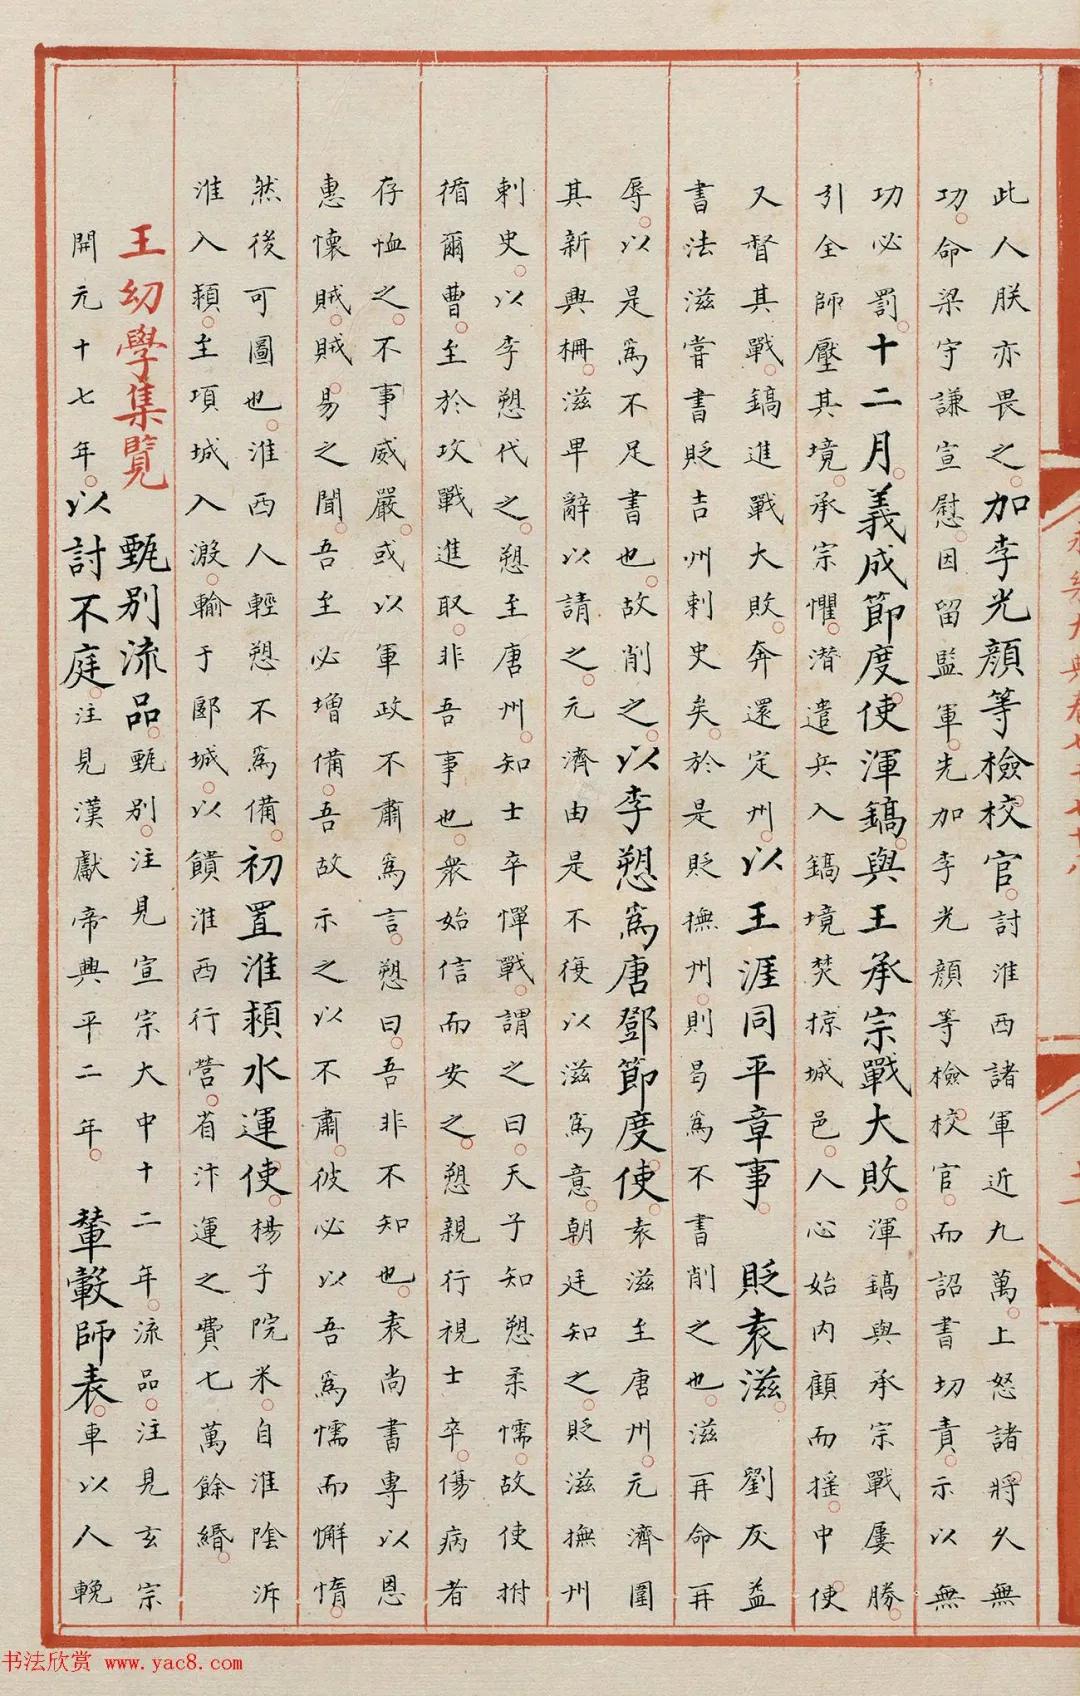 此人朕亦畏之加李光顔等檢校官討淮西諸軍近九萬上怒諸將久無
功命梁守謙宣慰因留監軍先加李光顔等檢校官而詔書切責示以無
功必罰十二月義成節度使渾鎬與王承宗戰大敗渾鎬與承宗戰屢勝
引全師壓其境承宗懼潜遣兵入鎬境焚掠城邑人心始内顧而摇中使
又督其戰鎬進戰大敗奔還定州以王涯同平章事 貶袁滋 劉友益
書法滋嘗書貶吉州刺史矣於是貶撫州則曷爲不書削之也滋再命再
辱以是爲不足書也故削之以李愬爲唐鄧節度使袁滋至唐州元濟圍
其新興柵滋卑辭以請之元濟由是不復以滋爲意朝廷知之貶滋撫州
刺史以李愬代之愬至唐州知士卒憚戰謂之曰天子知愬柔懦故使拊
循爾曹至於攻戰進取非吾事也衆始信而安之愬親行視士卒傷病者
存恤之不事威嚴或以軍政不肅爲言愬曰吾非不知也袁尚書專以恩
惠懷賊賊易之聞吾至必增備吾故示之以不肅彼必以吾爲懦而懈惰
然後可圖也淮西人輕愬不爲備初置淮潁水運使楊子院米自淮陰泝
淮入潁至項城入溵輸于郾城以饋淮西行營省汴運之費七萬餘緡
王幼學集覽 甄别流品甄别注見宣宗大中十二年流品注見玄宗
開元十七年以討不庭注見漢獻帝興平二年 輦轂師表車以人輓
书法欣赏 www.yac8.com